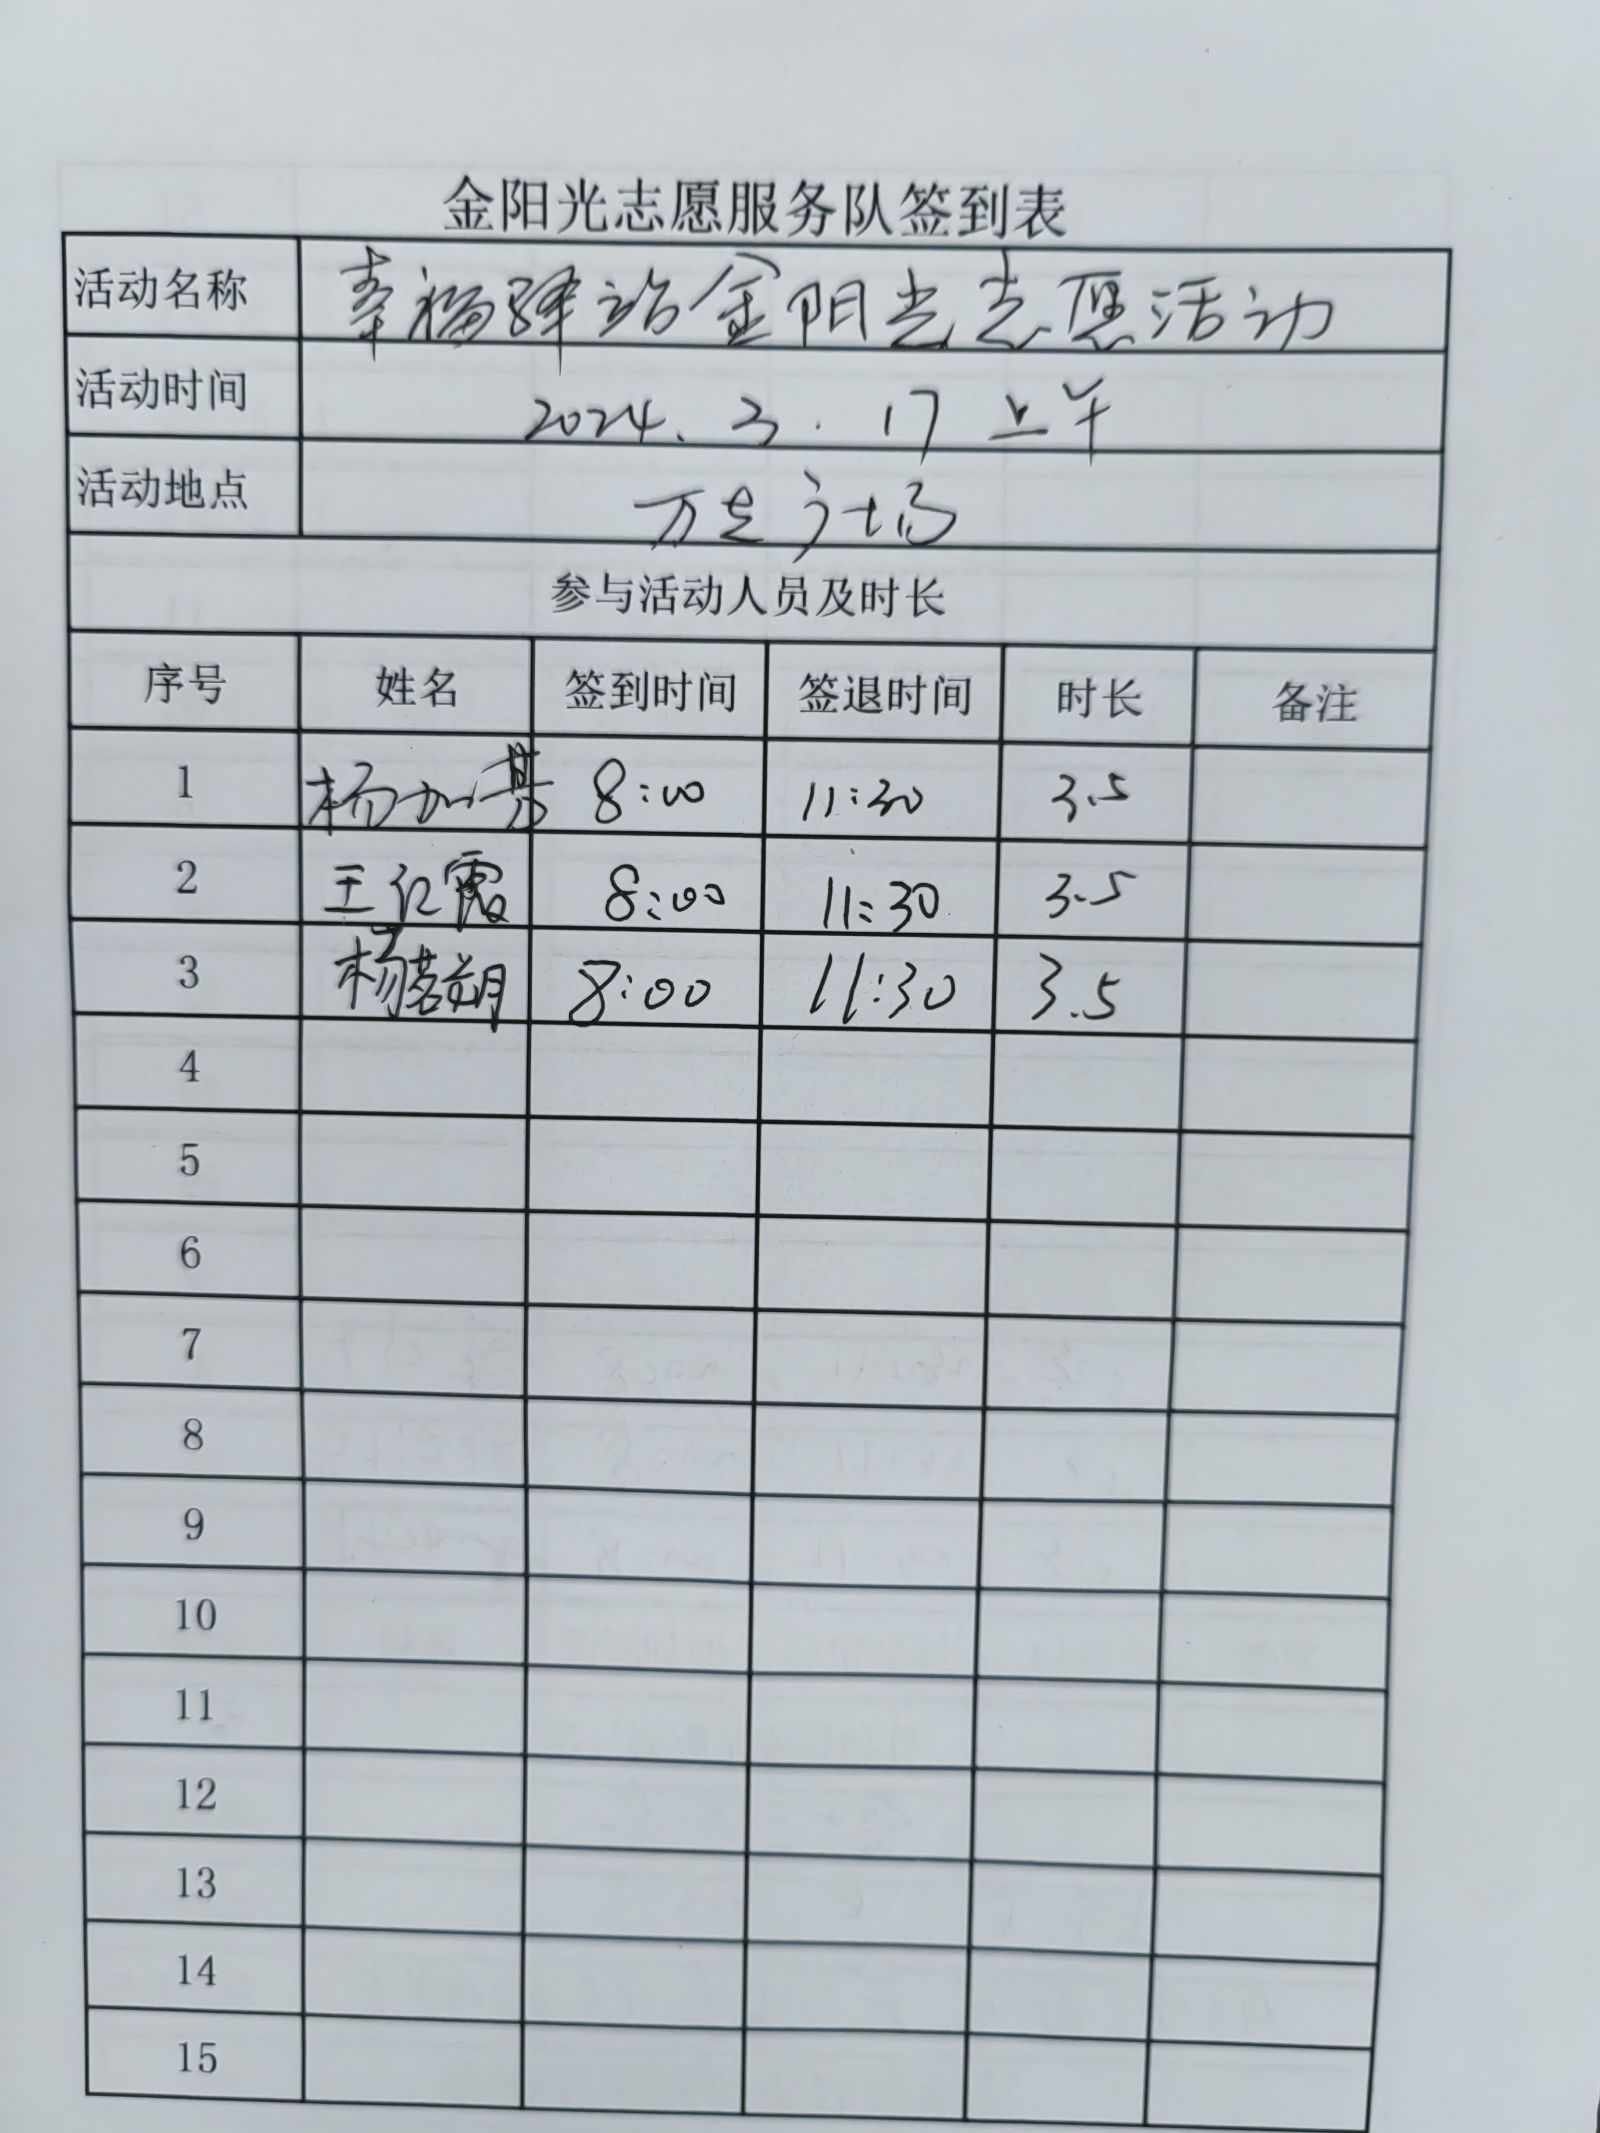 金阳光志愿服务队签到表
活动名称 幸福驿站金阳光志愿活动
活动时间 2024.3.17 上午
活动地点 万达广场
参与活动人员及时长
序号 姓名 签到时间 签退时间 时长 备注
1 杨加 8:00 11:30 3.5
2 王红霞 8:00 11:30 3.5
3 杨茗朔 8:00 11:30 3.5
4
5
6
7
8
9
10
11
12
13
14
15